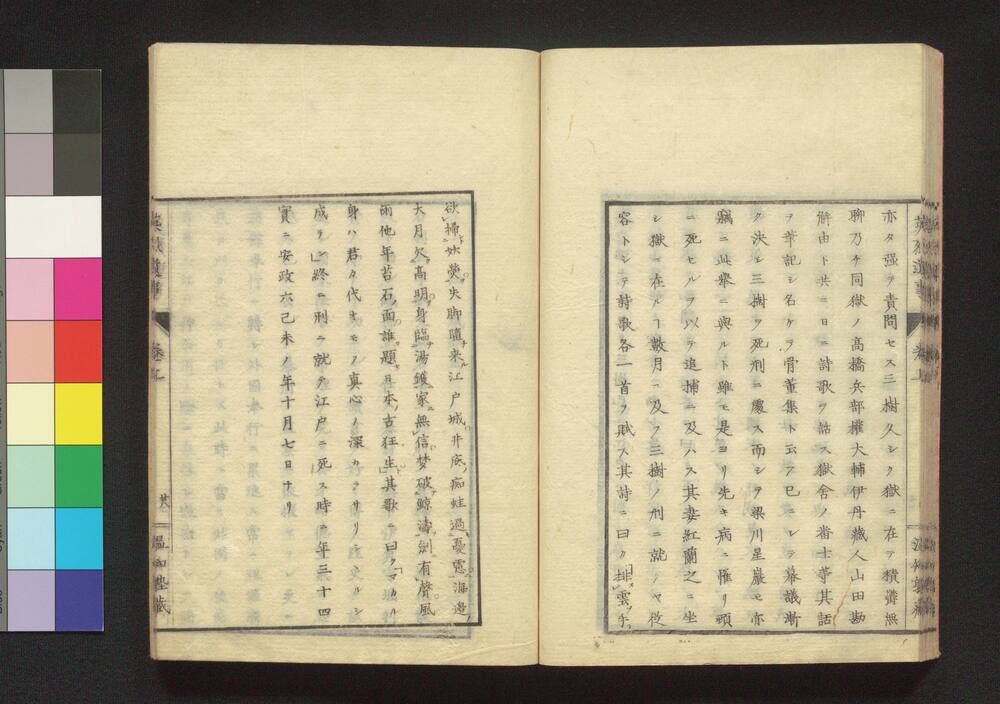 亦タ强テ責問セス三樹久シク獄ニ在テ積欝無
聊乃チ同獄ノ高橋兵部權大輔伊丹藏人山田勘
解由ト共ニ日ニ詩歌ヲ話ス獄舍ノ番士等其話
ヲ筆記シ名ケテ骨董集ト云フ已ニシテ幕議漸
ク決シ三樹ヲ死刑ニ處ス而シテ梁川星巖モ亦
竊ニ此舉ニ與ルト雖モ是ヨリ先キ病ニ罹リ頭
ニ死セルヲ以テ追捕ニ及ハス其妻紅蘭之ニ坐
シ獄ニ在ルヿ數月ニ及フ三樹ノ刑ニ就クヤ從
容トシテ詩歌各一首ヲ賦ス其詩ニ曰ク排雲手
欲掃妖熒失脚墮来江戸城井底痴蛙過憂慮海邊
大月欠高明身臨湯鑊家無信夢破鯨濤劍有聲風
雨他年苔石面誰題日本古狂生其歌ニ曰クマカル
身ハ君カ代オモフ真心ノ深カラサリ
成リ終ニ刑ニ就テ江戸ニ死ス時ニ年三十四
實ニ安政六己未ノ年十月七日ナリ